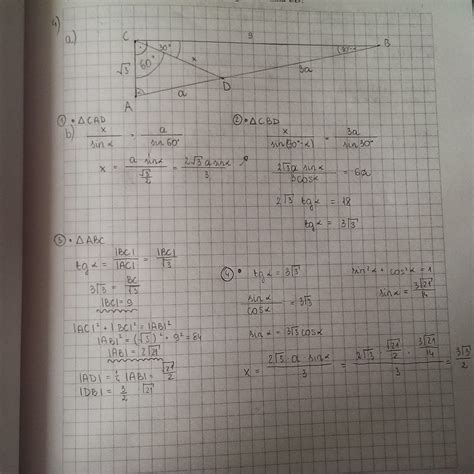 4)
a)
C 9 B
30° x 90°-α
√3 60° 3a
D
A a α
① • △CAD
b) x/sinα = a/sin60°
x = a sinα / (√3/2) = 2√3 a sinα / 3
② • △CBD
x/sin(90°-α) = 3a/sin30°
2√3a sinα / 3cosα = 6a
2√3 tgα = 18
tgα = 3√3
③ • △ABC
tgα = |BC|/|AC| = |BC|/√3
3√3 = BC/√3
|BC| = 9
|AC|² + |BC|² = |AB|²
|AB|² = (√3)² + 9² = 84
|AB| = 2√21
|AD| = ¼ |AB| = √21/2
|DB| = 3/2 √21
④ • tgα = 3√3
sinα/cosα = 3√3
sinα = 3√3 cosα
sin²α + cos²α = 1
x = 2√3 · a sinα / 3 = 2√3 · √21/2 · 3√21/14 / 3 = 3√3/2